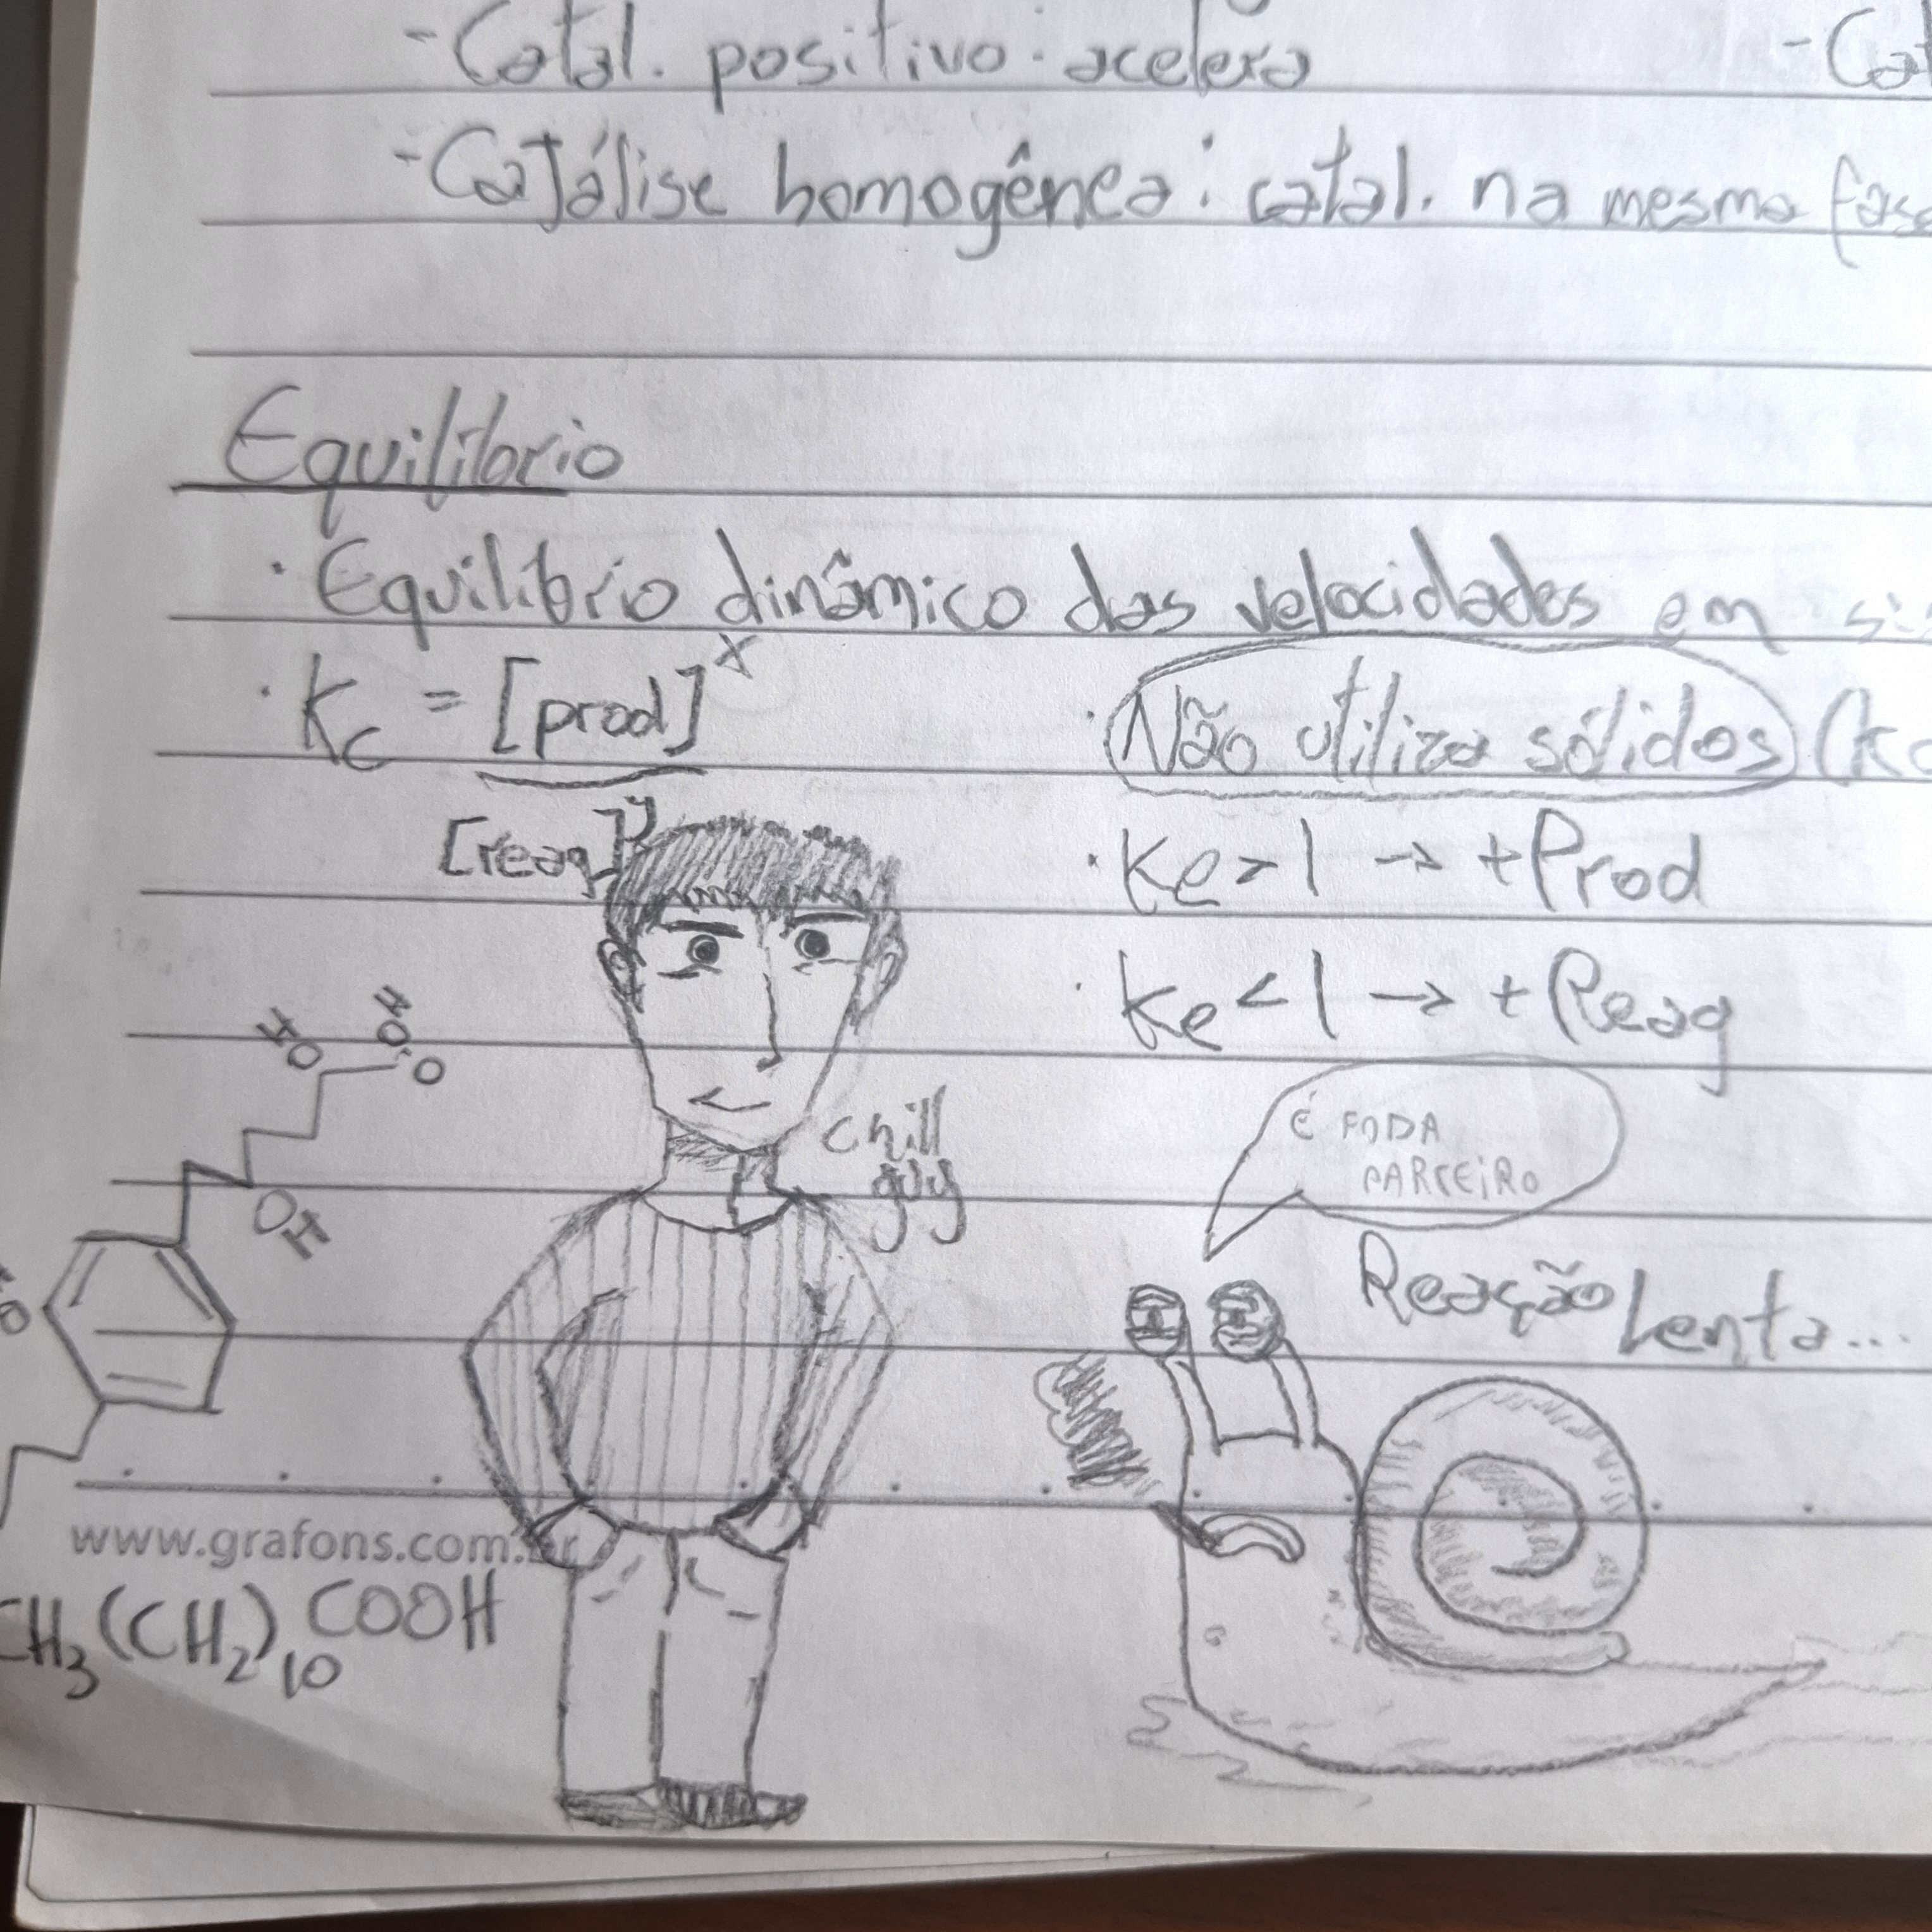 - Catal. positivo: acelera - Cat
- Catálise homogênea: catal. na mesma fase
Equilíbrio
· Equilíbrio dinâmico das velocidades em si
· Kc = [prod]^x
[reag]^y
· Não utiliza sólidos (Kc
· Ke > 1 → + Prod
· Ke < 1 → + Reag
HO OH O
OH
O
chill
guy
É FODA
PARCEIRO
Reação Lenta...
www.grafons.com.br
CH₃(CH₂)₁₀COOH